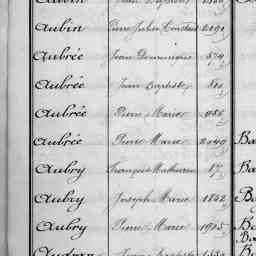 Aubin
Aubin Pierre Julien Constant 2091
Aubrée Jean Dominique 579
Aubrée Jean Baptiste 810
Aubrée Pierre Marie 1056
Aubrée Pierre Marie 2049 Bo
Aubry François Mathurin 17 Ba
Aubry Joseph Marie 1802 Ba
Aubry Pierre Marie 1975 Ba
Jean Baptiste